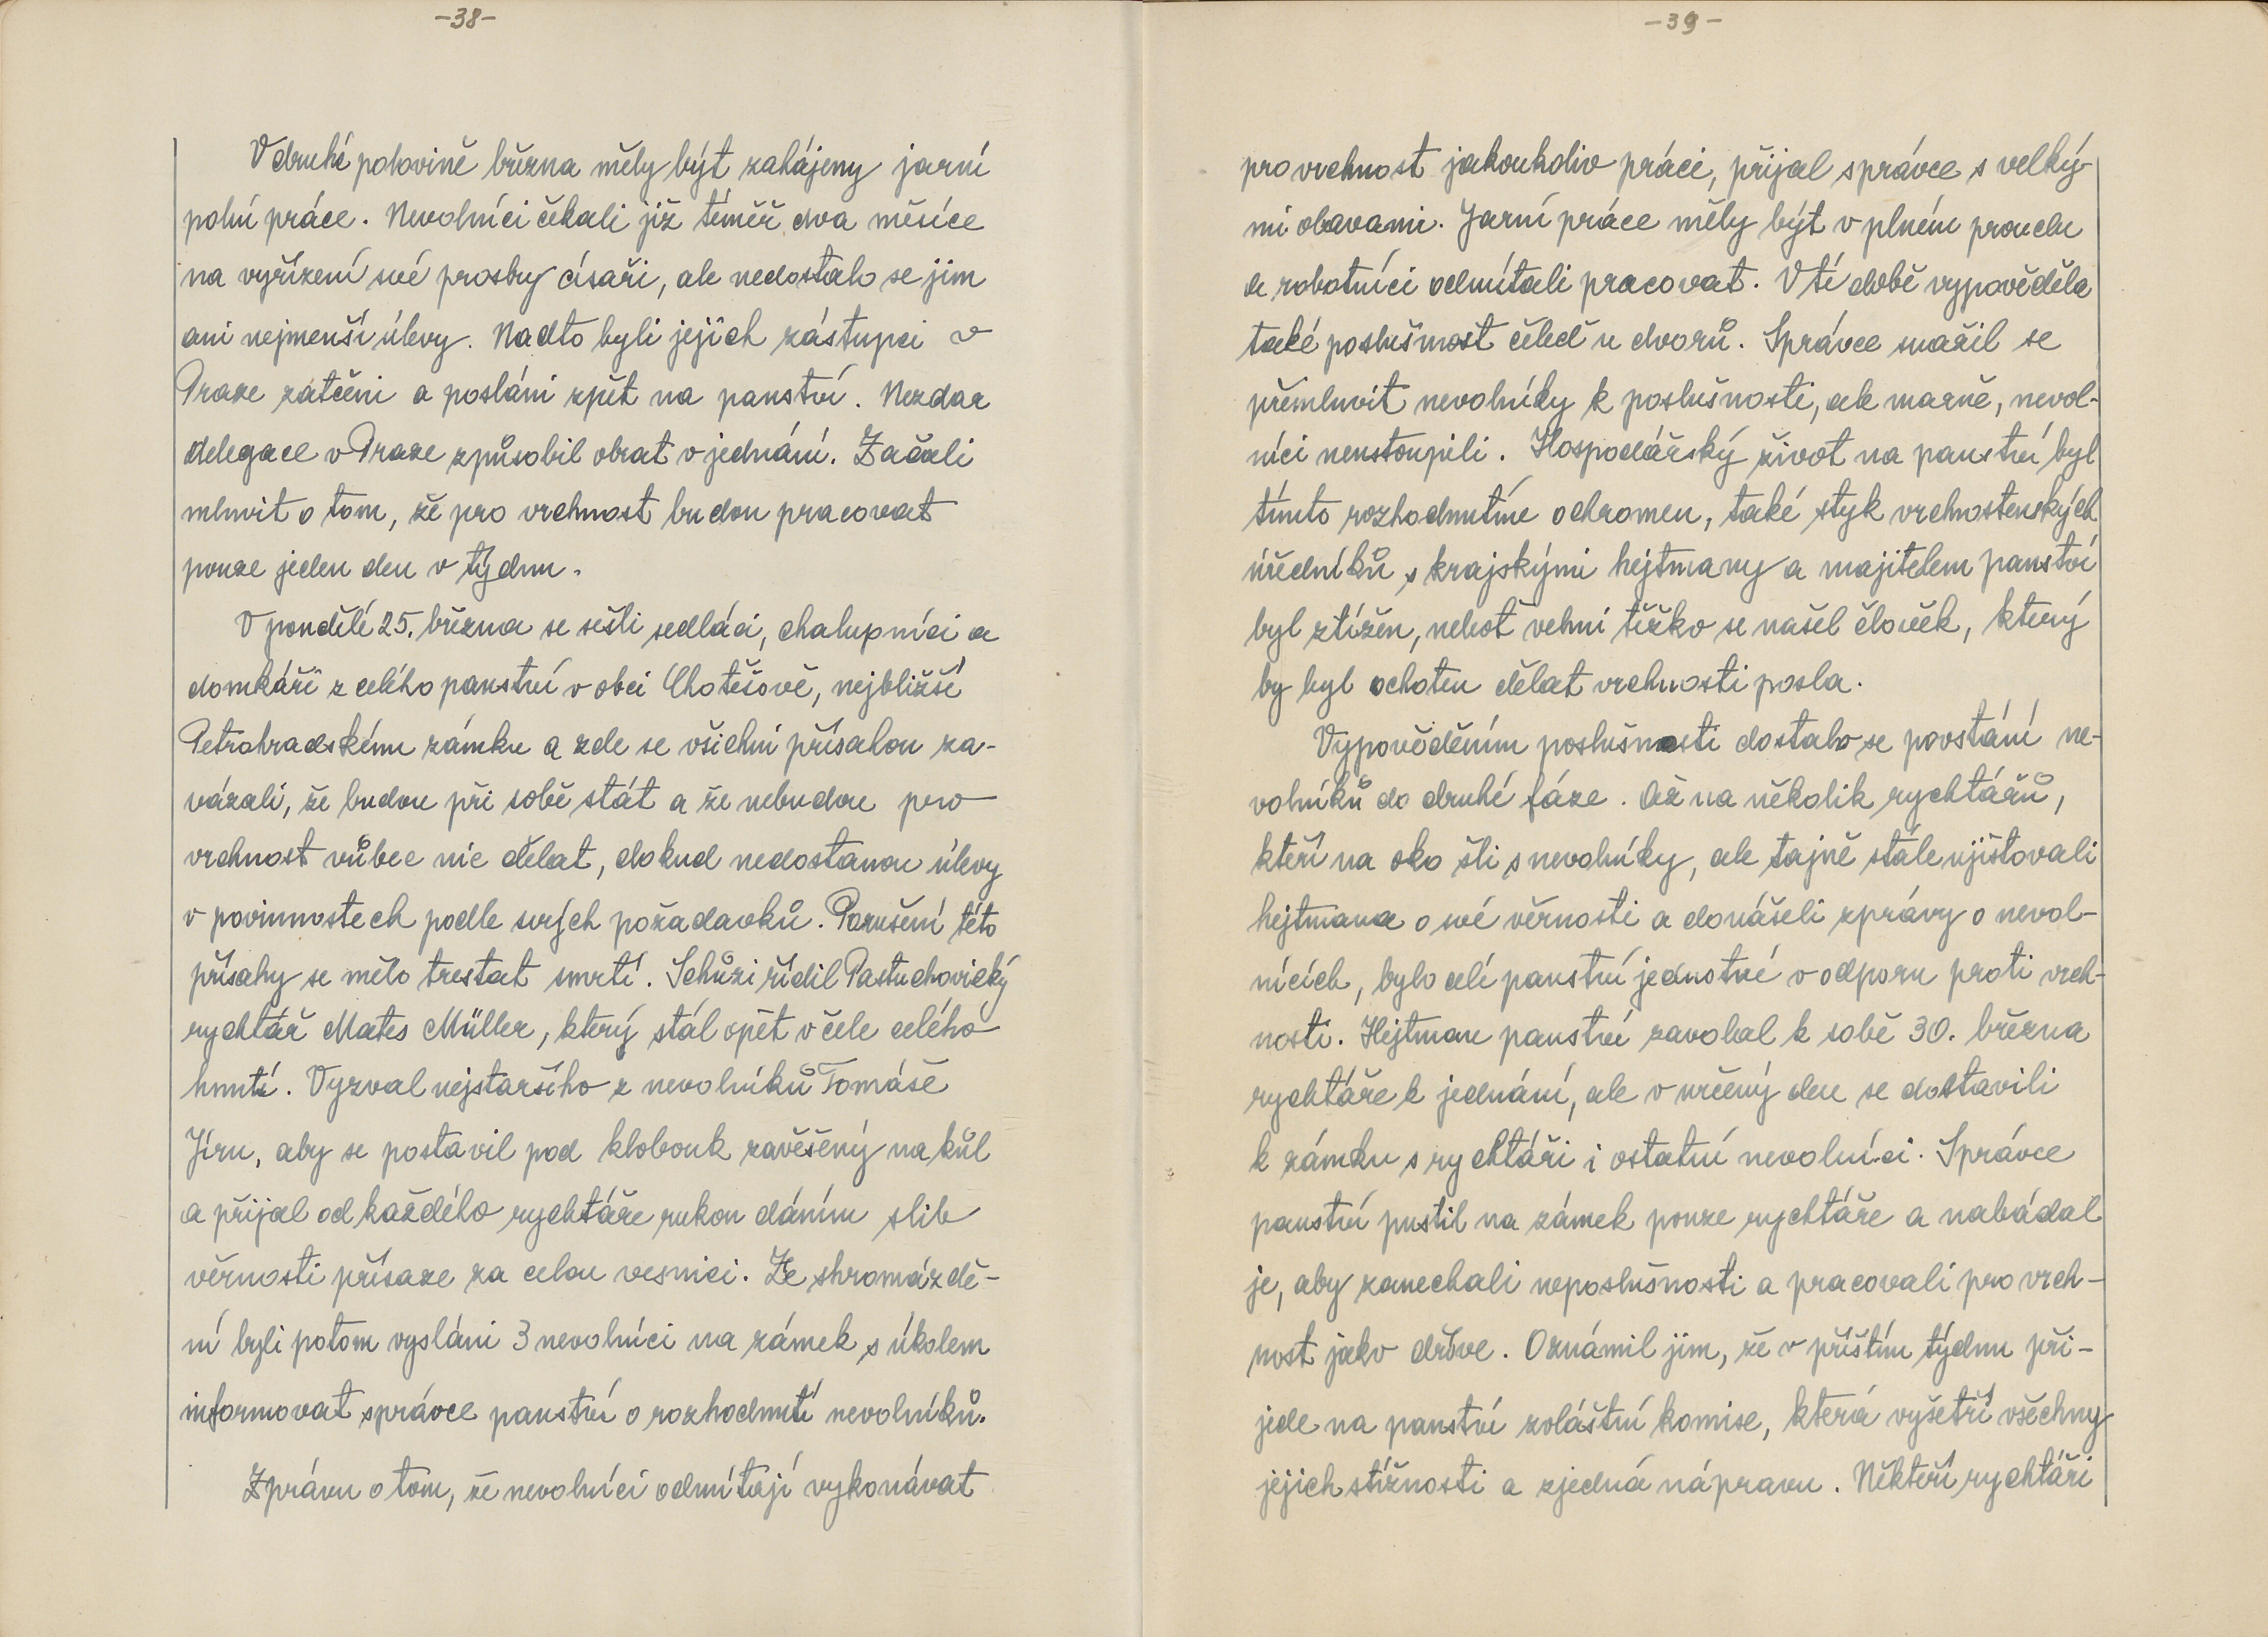 -38-
V druhé polovině března měly být zahájeny jarní
polní práce. Nevolníci čekali již téměř dva měsíce
na vyřízení své prosby císaři, ale nedostalo se jim
ani nejmenší úlevy. Nadto byli jejich zástupci v
Praze zatčeni a posláni zpět na panství. Nezdar
delegace v Praze způsobil obrat v jednání. Začali
mluvit o tom, že pro vrchnost budou pracovat
pouze jeden den v týdnu.
V pondělí 25. března se sešli sedláci, chalupníci a
domkáři z celého panství v obci Chotěšově, nejbližší
Petrohradskému zámku a zde se všichni přísahou za-
vázali, že budou při sobě stát a že nebudou pro
vrchnost vůbec nic dělat, dokud nedostanou úlevy
v povinnostech podle svých požadavků. Porušení této
přísahy se mělo trestat smrtí. Schůzi řídil Pastuchovický
rychtář Mates Müller, který stál opět v čele celého
hnutí. Vyzval nejstaršího z nevolníků Tomáše
Jíru, aby se postavil pod klobouk zavěšený na kůl
a přijal od každého rychtáře rukou dáním slib
věrnosti přísaze za celou vesnici. Ze shromáždě-
ní byli potom vysláni 3 nevolníci na zámek s úkolem
informovat správce panství o rozhodnutí nevolníků.
Zprávu o tom, že nevolníci odmítají vykonávat
-39-
pro vrchnost jakoukoliv práci, přijal správce s velký-
mi obavami. Jarní práce měly být v plném proudu
a robotníci odmítali pracovat. V té době vypověděla
také poslušnost čeleď u dvorů. Správce snažil se
přemluvit nevolníky k poslušnosti, ale marně, nevol-
níci neustoupili. Hospodářský život na panství byl
tímto rozhodnutím ochromen, také styk vrchnostenských
úředníků s krajskými hejtmany a majitelem panství
byl ztížen, neboť velmi těžko se našel člověk, který
by byl ochoten dělat vrchnosti posla.
Vypověděním poslušnosti dostalo se povstání ne-
volníků do druhé fáze. Až na několik rychtářů,
kteří na oko šli s nevolníky, ale tajně stále ujišťovali
hejtmana o své věrnosti a donášeli zprávy o nevol-
nících, bylo celé panství jednotné v odporu proti vrch-
nosti. Hejtman panství zavolal k sobě 30. března
rychtáře k jednání, ale v určený den se dostavili
k zámku s rychtáři i ostatní nevolníci. Správce
panství pustil na zámek pouze rychtáře a nabádal
je, aby zanechali neposlušnosti a pracovali pro vrch-
nost jako dříve. Oznámil jim, že v příštím týdnu při-
jede na panství zvláštní komise, která vyšetří všechny
jejich stížnosti a zjedná nápravu. Někteří rychtáři